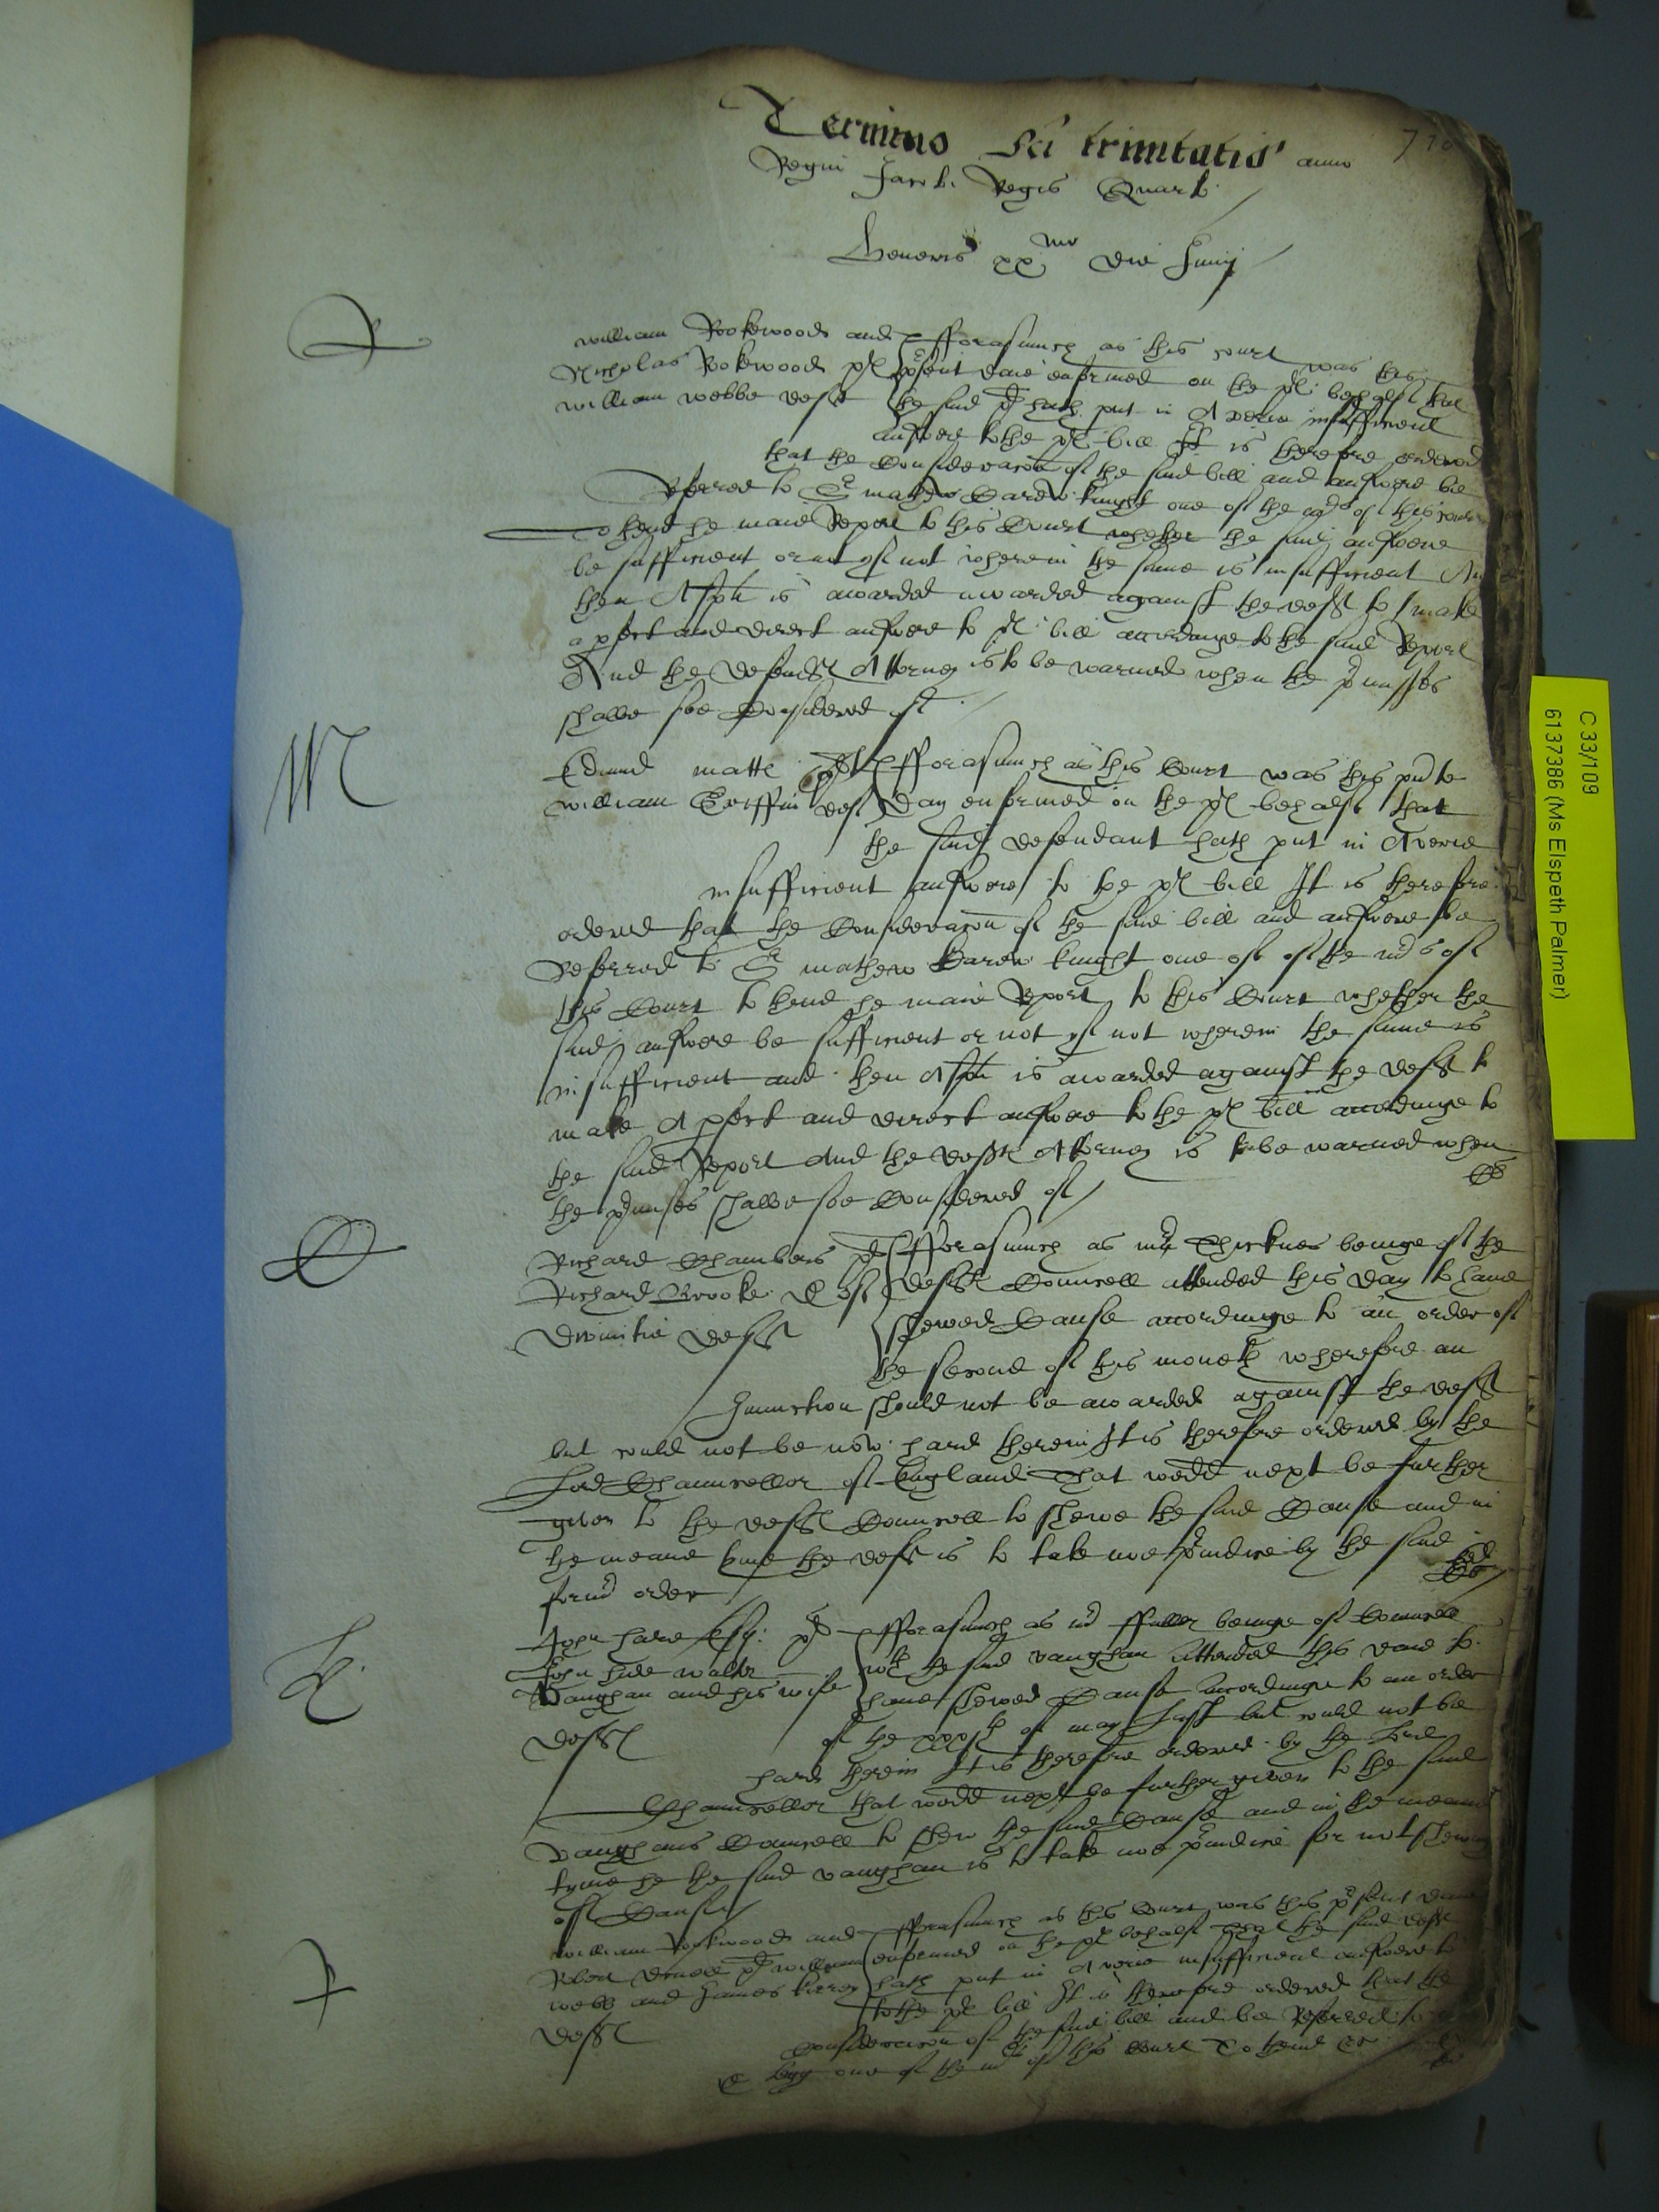 Termino Sci trinitatis anno
Regni Jacobi Regis Quarto
Veneris xx mo die Junij
R
William Rokewoode and
Nicholas Rokewoode pl
William Webbe deft
Efforasmuch as this court was this
present daie enformed on the pl behalf that
the said def hath put in A verie insufficient
answere to the pl bill It is therefore ordered
that the Consideracon of the said bill and answere be
Referred to Sr mathew Carew knight one of the mrs of this courte
To thend he maie Report to this Court whether the said answere
be sufficient or not yf not wherein the same is insufficient And
then A spa is awarded awarded against the deft to make
a pfect and direct answere to pl bill accordinge to the said Report
And the defendts Attorney is to be warned when the pmisses
shalbe soe Considered of
M
Edmund matte pl
William Griffin deft
Efforasmuch as this Court was this pnte
day enformed on the pl behalf that
the said defendant hath put in A verie
insufficient answere to the pl bill It is therefore
ordered that the Consideracon of the said bill and answere be
Referred to Sr mathew Carew knight one of of the mrs of
this Court to thend he maie Report to this Court whether the
said answere be sufficient or not yf not wherein the same is
insufficient and then A spa is awarded against the deft to
make A pfect and direct answere to the pl bill accordinge to
the said Report And the defts Attorney is to be warned when
the pmisses shalbe soe Considered of
C
Richard Chambers pl
Richard Brooke
deft
Efforasmuch as mr Thicknes beinge of the
defts Councell attended this day to haue
shewed Cause accordinge to an order of
the second of this moneth wherefore an
Iniunction should not be awarded against the deft
but could not be now hard therein It is therefore ordered by the
Lord Chauncellor of England That wedd next be further
given to the defts Councell to shewe the said Cause and in
the meane tyme the deft is to take noe preiudice by the said
former order
H
John hare Esq: pl
John hide walter
Vaughan and his wife
deftes
Efforasmuch as mr ffuller beinge of Councell
wth the said vaughan attended this daie to
haue shewed Cause accordinge to an order
of the xxxth of may last but could not be
hard therein It is therefore ordered by the Lord
Chauncellor that wedd next be further given to the said
Vaughans Councell to shew the said Cause and in the meane
tyme he the said vaughan is to take noe preiudice for not shewing
of Cause
William Rookwoode and
Robert pl William
webb and James
deftes
Efforasmuch as this Court was this present daie
enformed on the pl behalf that the said deft
hath put in A verie insufficient answere to
to the pl bill It is therefore ordered that the
consideracon of the said bill and be Referred to
one of the mrs of this Court To thend
C 33/109
6137386 (Ms Elspeth Palmer)